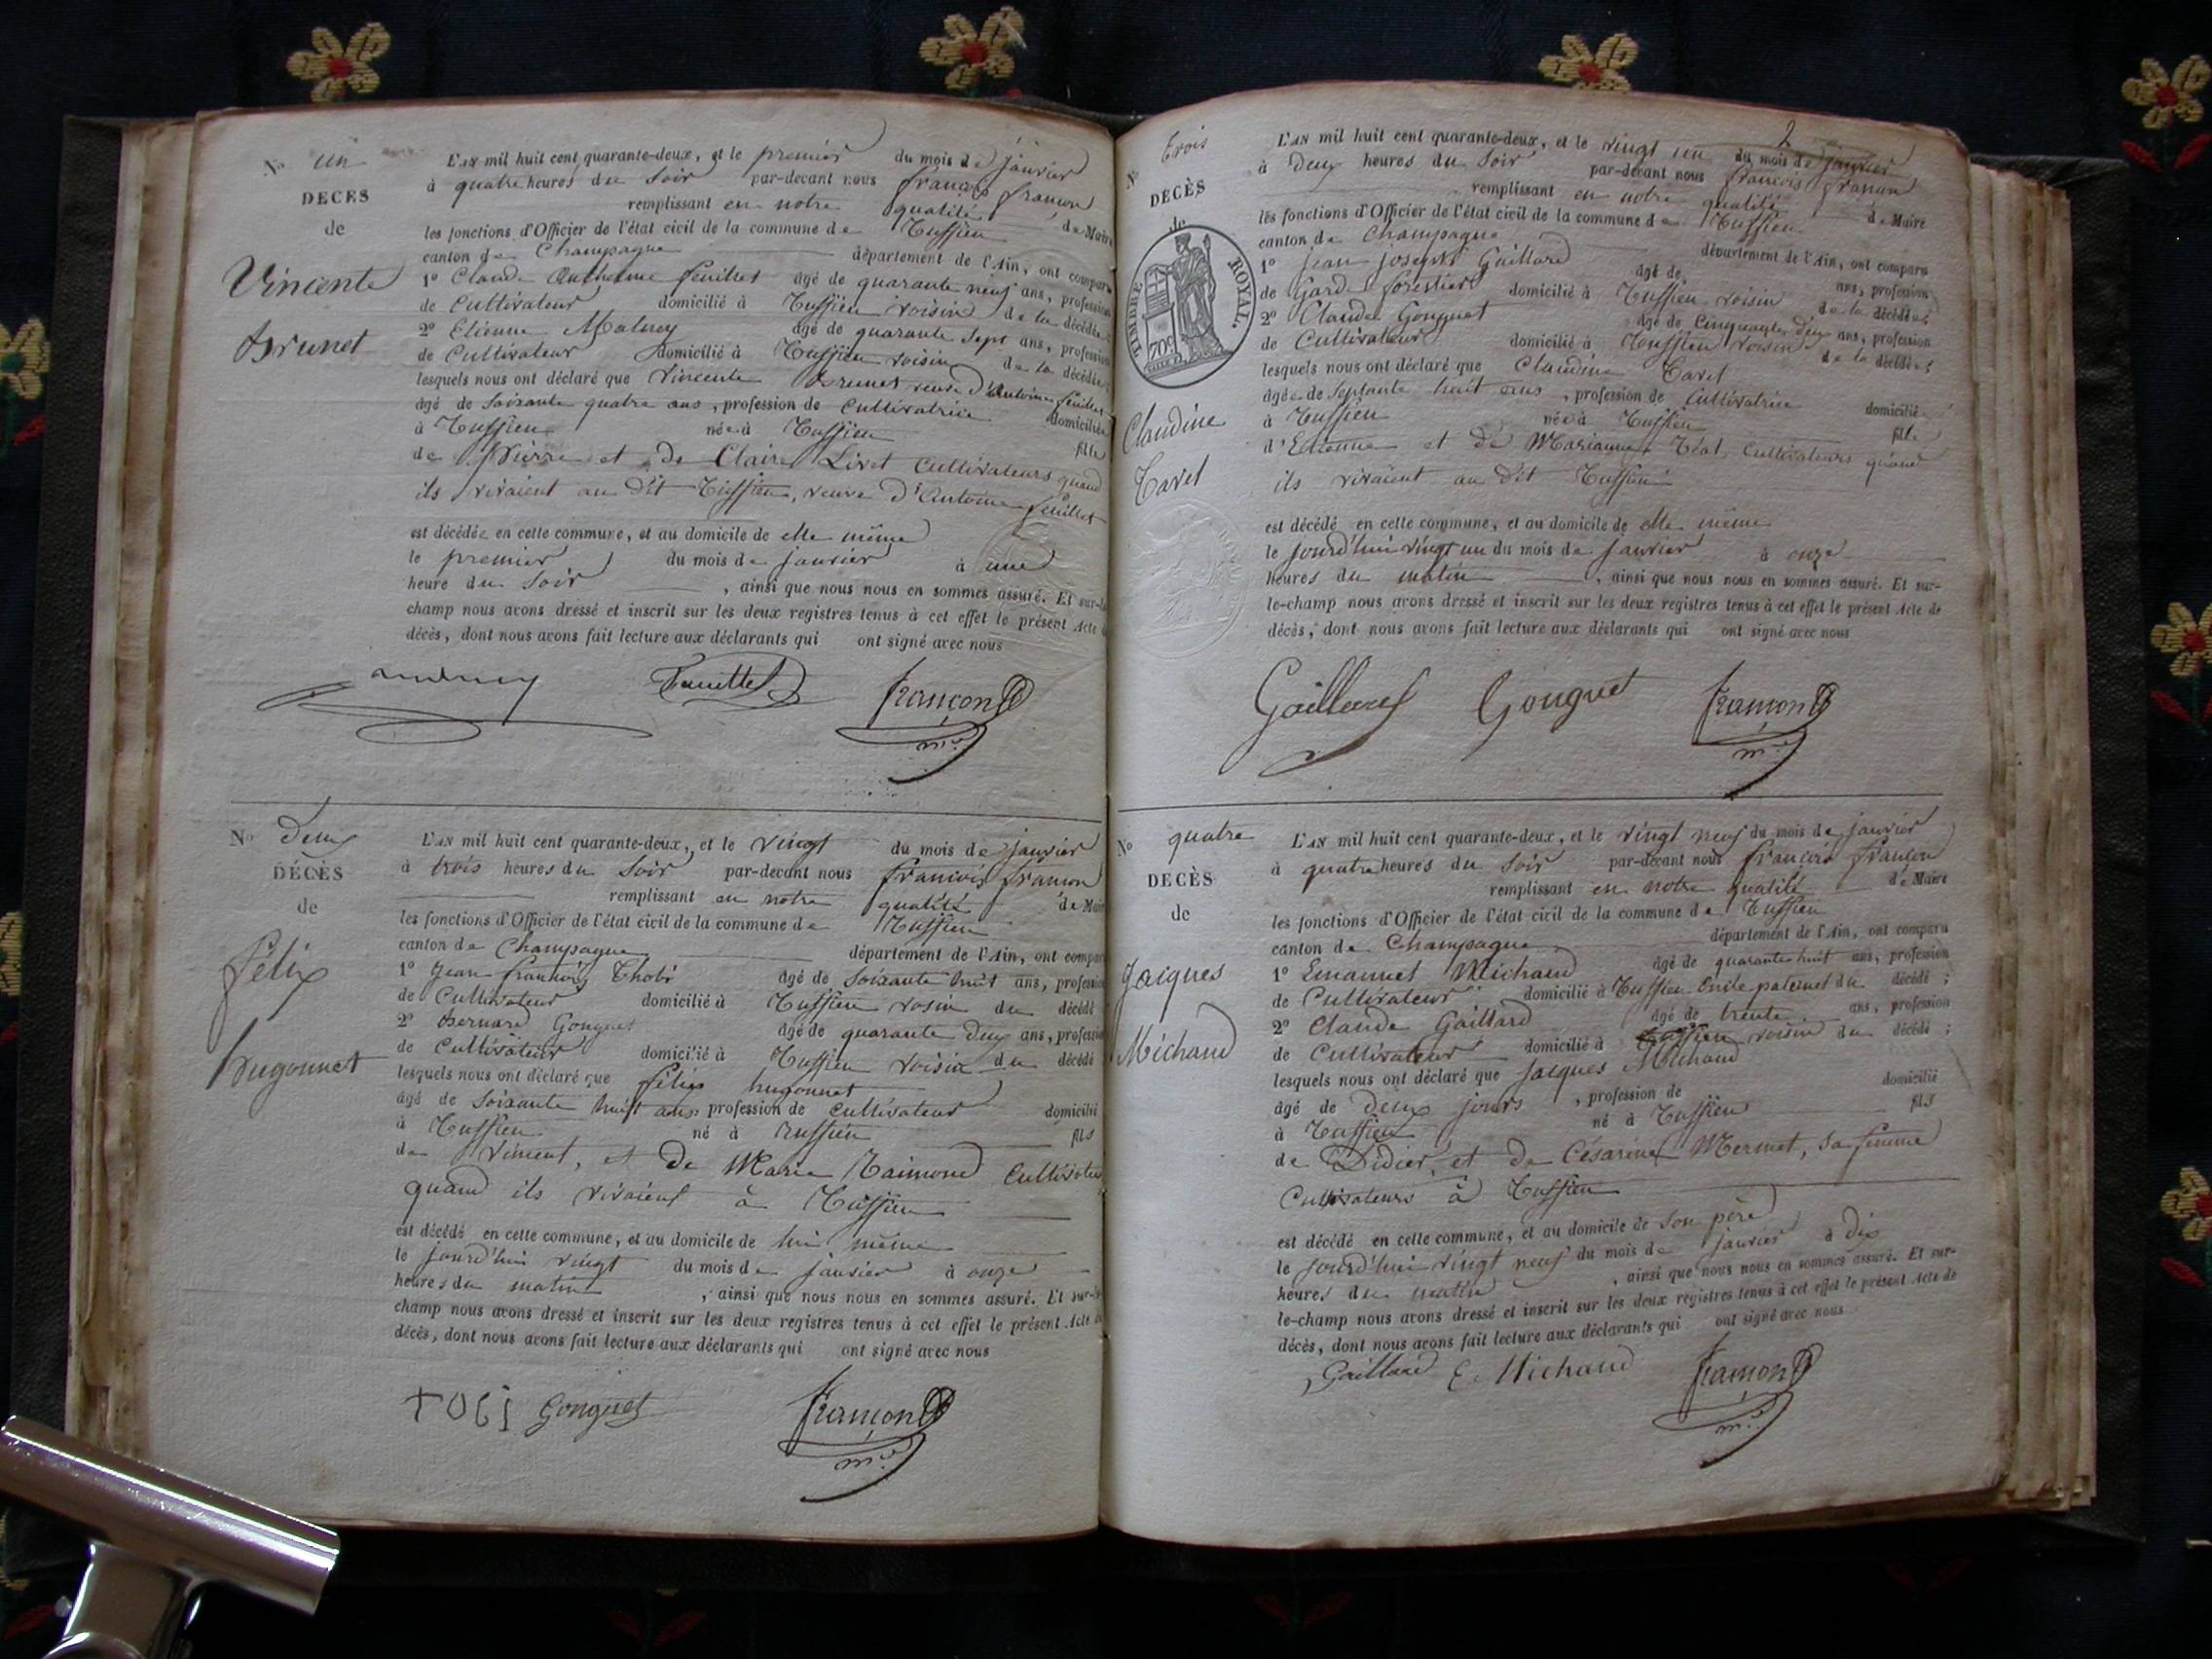 No un
DÉCÈS
de
Vincente
Brunet
L'AN mil huit cent quarante-deux, et le premier du mois de janvier
à quatre heures du soir par-devant nous françois françon
remplissant en notre qualité de Maire
les fonctions d'Officier de l'état civil de la commune de
canton de Champagne département de l'Ain, ont comparu
1o Claude Anthelme feuillet âgé de quarante neuf ans, profession
de Cultivateur domicilié à voisin de la décédée
2o Etienne âgé de quarante sept ans, profession
de Cultivateur domicilié à voisin de la décédée
lesquels nous ont déclaré que Vincente Brunet veuve d'Antoine feuillet
âgé de soixante quatre ans, profession de Cultivatrice domiciliée
à née à fille
de Pierre et de Claire Livet cultivateurs quand
ils vivaient au dit veuve d'Antoine feuillet
est décédée en cette commune, et au domicile de elle même
le premier du mois de janvier à une
heure du soir, ainsi que nous nous en sommes assuré. Et sur-le
champ nous avons dressé et inscrit sur les deux registres tenus à cet effet le présent Acte de
décès, dont nous avons fait lecture aux déclarants qui ont signé avec nous
feuillet françon
me
No deux
DÉCÈS
de
félix
hugonnet
L'AN mil huit cent quarante-deux, et le vingt du mois de janvier
à trois heures du soir par-devant nous francois françon
remplissant en notre qualité de Maire
les fonctions d'Officier de l'état civil de la commune de
canton de Champagne département de l'Ain, ont comparu
1o Jean françois Thobi âgé de soixante huit ans, profession
de Cultivateur domicilié à voisin du décédé
2o Bernard Gonguet âgé de quarante deux ans, profession
de Cultivateur domicilié à voisin du décédé
lesquels nous ont déclaré que félix hugonnet
âgé de soixante huit ans profession de cultivateur domicilié
à né à fils
de Vincent, et de Marie Raimond Cultivateurs
quand ils vivaient à
est décédé en cette commune, et au domicile de lui même
le jourd'hui vingt du mois de janvier à onze
heures du matin, ainsi que nous nous en sommes assuré. Et sur-le-
champ nous avons dressé et inscrit sur les deux registres tenus à cet effet le présent Acte de
décès, dont nous avons fait lecture aux déclarants qui ont signé avec nous
TOBI Gonguet françon
me
2
No trois
DÉCÈS
de
TIMBRE ROYAL.
70c
Claudine
Tavel
L'AN mil huit cent quarante-deux, et le vingt un du mois de janvier
à deux heures du soir par-devant nous francois françon
remplissant en notre qualité de Maire
les fonctions d'Officier de l'état civil de la commune de
canton de Champagne département de l'Ain, ont comparu
1o Jean joseph Gaillard âgé de ans, profession
de Gard forestier domicilié à voisin de la décédée
2o Claude Gonguet âgé de Cinquante deux ans, profession
de Cultivateur domicilié à voisin de la décédée
lesquels nous ont déclaré que Claudine Tavel
âgée de septante huit ans, profession de Cultivatrice domicilié
à née à fille
d'Etienne et de Marianne Cultivateurs quand
ils vivaient au dit
est décédé en cette commune, et au domicile de elle même
le jourd'hui vingt un du mois de janvier à onze
heures du matin, ainsi que nous nous en sommes assuré. Et sur-
le-champ nous avons dressé et inscrit sur les deux registres tenus à cet effet le présent Acte de
décès, dont nous avons fait lecture aux déclarants qui ont signé avec nous
Gaillard Gonguet françon
me
No quatre
DECÈS
de
Jacques
Michaud
L'AN mil huit cent quarante-deux, et le vingt neuf du mois de janvier
à quatre heures du soir par-devant nous françois françon
remplissant en notre qualité de Maire
les fonctions d'Officier de l'état civil de la commune de
canton de Champagne département de l'Ain, ont comparu
1o Emanuel Michaud âgé de quarante huit ans, profession
de Cultivateur domicilié à oncle paternel du décédé;
2o Claude Gaillard âgé de trente ans, profession
de Cultivateur domicilié à voisin du décédé;
lesquels nous ont déclaré que Jacques Michaud
âgé de deux jours, profession de domicilié
à né à fils
de Didier, et de Césarine Mermet, sa femme
Cultivateurs à
est décédé en cette commune, et au domicile de son père
le jourd'hui vingt neuf du mois de janvier à dix
heures du matin, ainsi que nous nous en sommes assuré. Et sur-
le-champ nous avons dressé et inscrit sur les deux registres tenus à cet effet le présent Acte de
décès, dont nous avons fait lecture aux déclarants qui ont signé avec nous
Gaillard E. Michaud françon
me